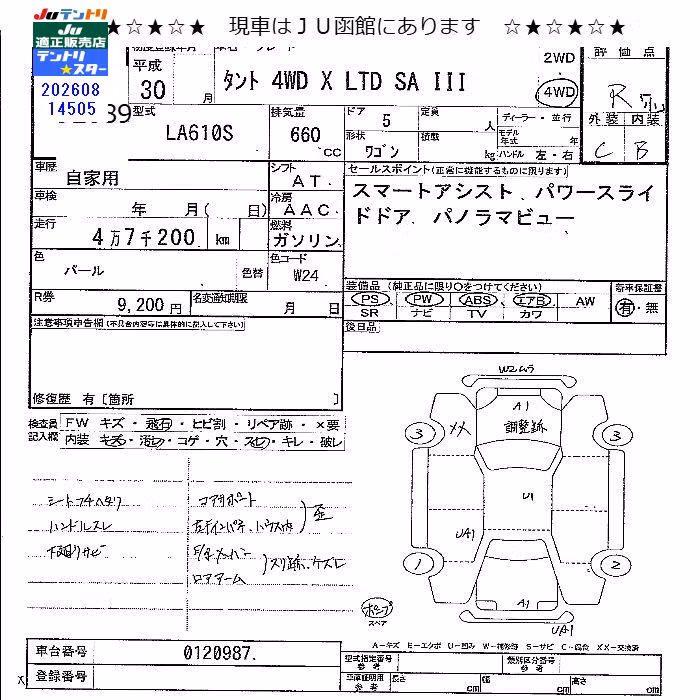 JUテントリ
JU
適正販売店
テントリ
★スター
★☆★☆★ 現車はＪＵ函館にあります ☆★☆★☆★
202608
14505
39
平成
30 月
タント 4WD X LTD SA III
2WD
4WD
評価点
R
外装 内装
C B
型式
LA610S
排気量
660
cc
ドア
5
定員
人
ディーラー・並行
形状
ワゴン
積数
kg
モデル年式
年
ハンドル 左・右
車歴
自家用
シフト
AT.
車検
年 月( 日)
冷房
AAC.
走行
4万7千200 km
燃料
ガソリン
色
パール
色替
色コード
W24
R券
9,200 円
名変期限
月 日
セールスポイント(正常に機能するものに限ります)
スマートアシスト、パワースライ
ドドア、パノラマビュー
装備品 (純正品に限り○をつけてください)
PS PW ABS エアB AW
SR ナビ TV カワ
新車保証書
有・無
後日品
注意事項申告欄(不具合内容等は具体的に記入して下さい)
修復歴 有〔箇所 〕
検査員
記入欄
FW キズ・飛石・ヒビ割・リペア跡・×要
内装 キズ・汚レ・コゲ・穴・スレ・キレ・破レ
ハンドルスレ
下廻りサビ
コアサポート
ロアアーム
歪
W2ムラ
A1
調整跡
XX
3
3
U1
UA1
1
2
A1
UA1
スペア
A－キズ E－エクボ U－凹み W－補修跡 S－サビ C－腐食 XX－交換済
車台番号
0120987.
登録番号
X
型式指定番号
参考
類別区分番号
参考
車庫証明用
参考
長さ cm
幅 cm
高さ cm